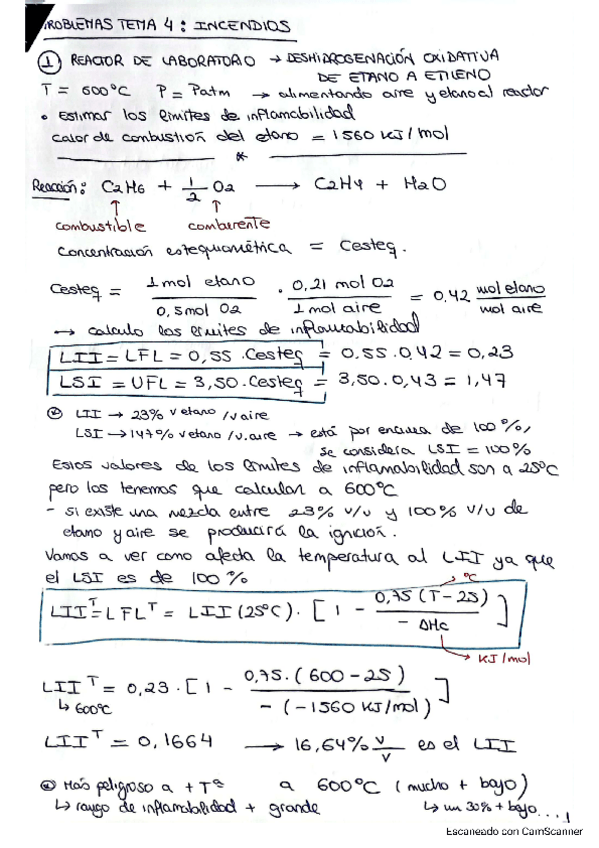 PROBLEMAS TEMA 4: INCENDIOS
① REACTOR DE LABORATORIO → DESHIDROGENACIÓN OXIDATIVA
DE ETANO A ETILENO
T = 600°C P = Patm → alimentando aire y etano al reactor
• Estimar los límites de inflamabilidad
calor de combustión del etano = 1560 KJ/mol
*
Reacción: C2H6 + 1/2 O2 → C2H4 + H2O
↑ ↑
combustible comburente
Concentración estequiométrica = Cesteq.
Cesteq = 1 mol etano / 0,5 mol O2 · 0,21 mol O2 / 1 mol aire = 0,42 mol etano / mol aire
→ calculo los límites de inflamabilidad
LII = LFL = 0,55 · Cesteq = 0.55 · 0,42 = 0,23
LSI = UFL = 3,50 · Cesteq = 3,50 · 0,43 = 1,47
LII → 23% v etano /v aire
LSI → 147% v etano /v.aire → está por encima de 100%,
se considera LSI = 100%
Estos valores de los límites de inflamabilidad son a 25°C
pero los tenemos que calcular a 600°C
- si existe una mezcla entre 23% v/v y 100% v/v de
etano y aire se producirá la ignición.
Vamos a ver como afecta la temperatura al LII ya que
el LSI es de 100%
→ °C
LII^T = LFL^T = LII (25°C) · [1 - 0,75 (T-25) / - ΔHc]
→ KJ/mol
LII^T = 0,23 · [1 - 0,75 · (600-25) / - (-1560 KJ/mol)]
↳ 600°C
LII^T = 0,1664 → 16,64% v/v es el LII
Más peligroso a + Tª a 600°C (mucho + bajo)
↳ rango de inflamabilidad + grande ↳ un 30% + bajo...
1
Escaneado con CamScanner